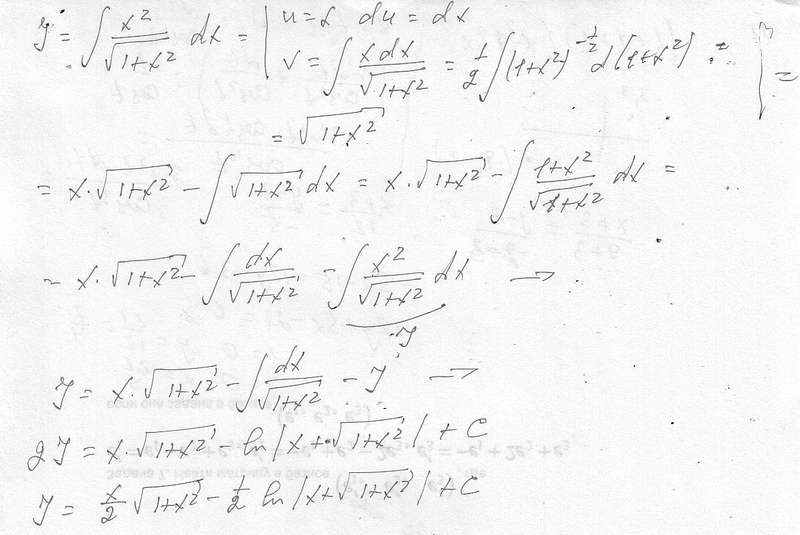 J = ∫ x²/√(1+x²) dx = | u = x du = dx
v = ∫ x dx/√(1+x²) = 1/2 ∫(1+x²)^(-1/2) d(1+x²) = | =
= √(1+x²)
= x·√(1+x²) - ∫√(1+x²) dx = x·√(1+x²) - ∫ (1+x²)/√(1+x²) dx =
= x·√(1+x²) - ∫ dx/√(1+x²) - ∫ x²/√(1+x²) dx →
J
J = x·√(1+x²) - ∫ dx/√(1+x²) - J →
2J = x·√(1+x²) - ln|x+√(1+x²)| + C
J = x/2 √(1+x²) - 1/2 ln|x+√(1+x²)| + C